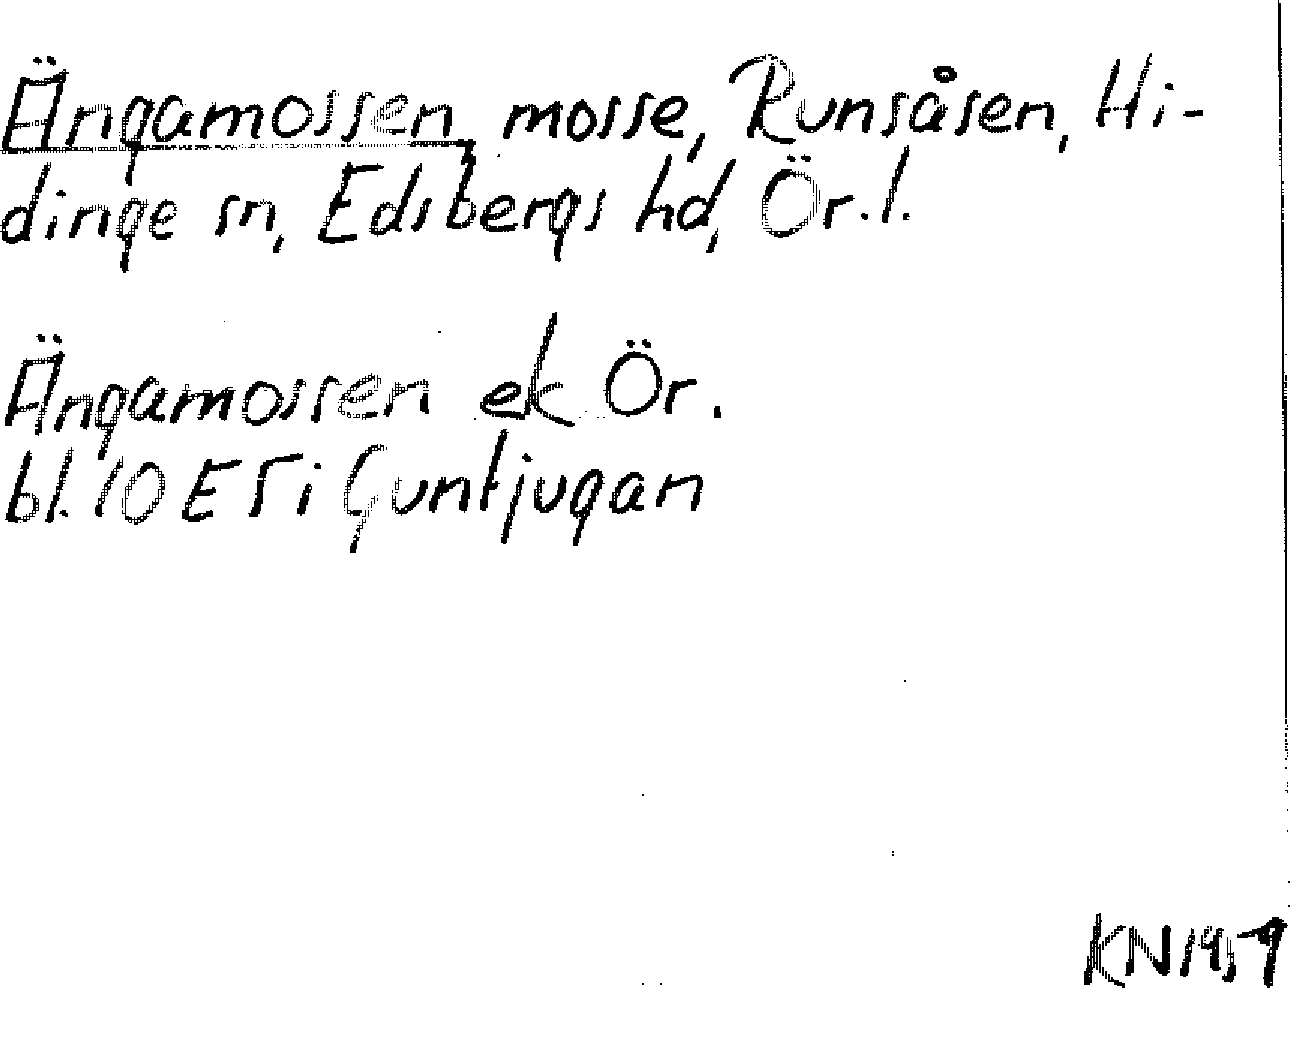 Ängamossen, mosse, Runsåsen, Hi-
dinge sn, Edsbergs hd, Ör. l.
Ängamossen ek Ör.
bl. 10 E 5 i Guntjugan
KN 1959